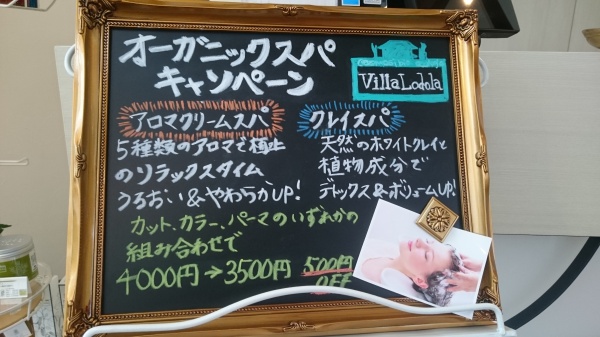 オーガニックスパ
キャンペーン
VillaLodola
アロマクリームスパ
5種類のアロマで極上
のリラックスタイム
うるおい&やわらかUP!
クレイスパ
天然のホワイトクレイと
植物成分で
デトックス&ボリュームUP!
カット、カラー、パーマのいずれかの
組み合わせで
4000円→3500円 500円
OFF